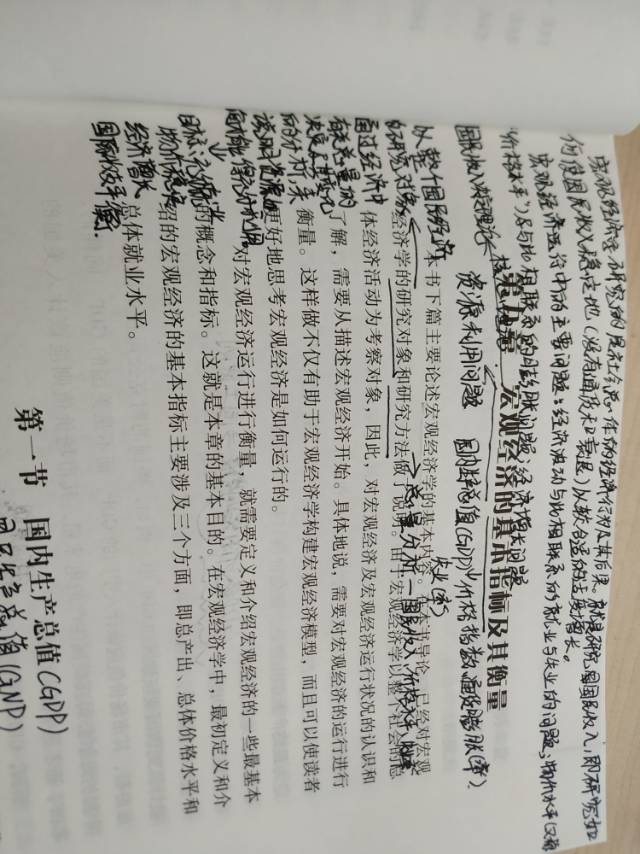 宏观经济学研究的是社会总体的经济行为及其后果。就是研究国民收入,即研究如
何使国民收入稳定地(没有通货和衰退)以较合适的速度增长。
宏观经济运行中的主要问题:经济波动与此相联系的就业与失业的问题;物价水平(又称
"价格水平")及与此相联系的通胀问题;经济增长问题
国民收入核算理论
第九章 宏观经济的基本指标及其衡量
资源利用问题 国内生产总值(GDP) 价格指数 通货膨胀(率)
失业(率)
以整个国民经济
为研究对象
通过经济中
有关总量的
决定及其变化
目标:充分就业
物价稳定
经济增长
国际收支平衡
总量分析—国民收入 价格水平
本书下篇主要论述宏观经济学的基本内容。在本书导论,已经对宏观
经济学的研究对象和研究方法做了说明。由于宏观经济学以整个社会的总
体经济活动为考察对象,因此,对宏观经济及宏观经济运行状况的认识和
了解,需要从描述宏观经济开始。具体地说,需要对宏观经济的运行进行
衡量。这样做不仅有助于宏观经济学构建宏观经济模型,而且可以使读者
更好地思考宏观经济是如何运行的。
对宏观经济运行进行衡量,就需要定义和介绍宏观经济的一些最基本
的概念和指标。这就是本章的基本目的。在宏观经济学中,最初定义和介
绍的宏观经济的基本指标主要涉及三个方面,即总产出、总体价格水平和
总体就业水平。
第一节 国内生产总值(GDP)
国民生产总值(GNP)